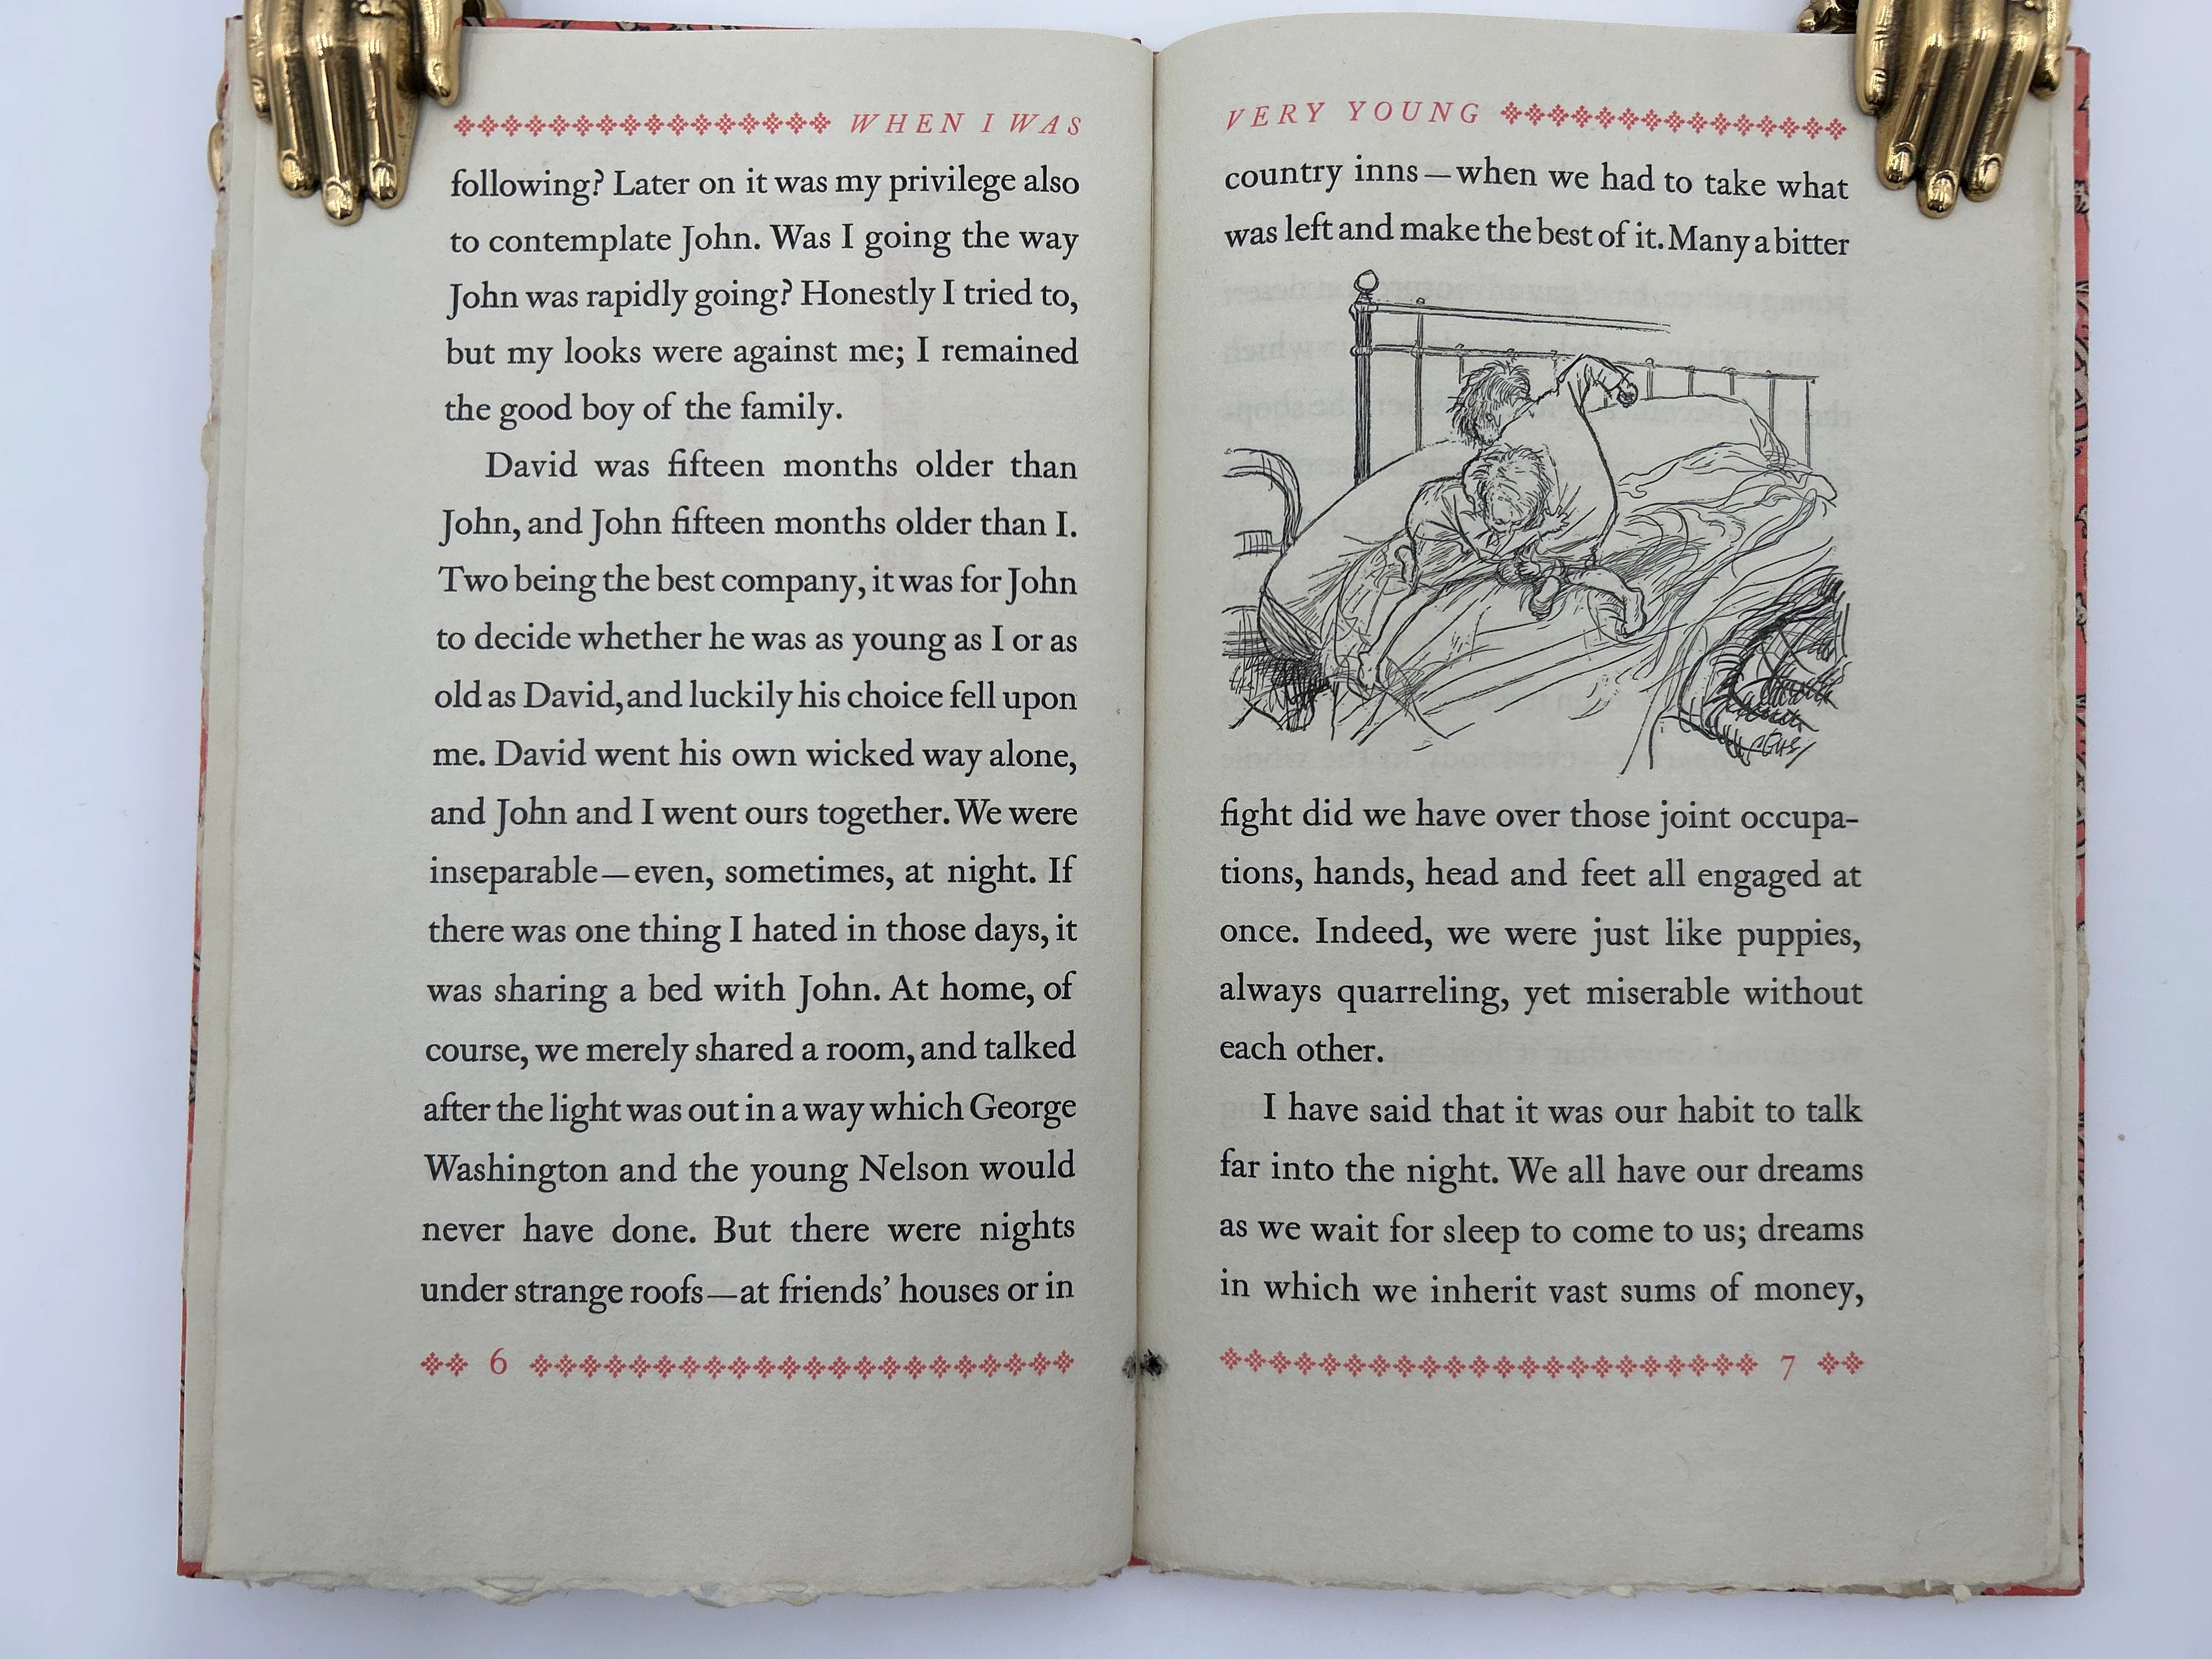 WHEN I WAS
following? Later on it was my privilege also
to contemplate John. Was I going the way
John was rapidly going? Honestly I tried to,
but my looks were against me; I remained
the good boy of the family.
David was fifteen months older than
John, and John fifteen months older than I.
Two being the best company, it was for John
to decide whether he was as young as I or as
old as David, and luckily his choice fell upon
me. David went his own wicked way alone,
and John and I went ours together. We were
inseparable—even, sometimes, at night. If
there was one thing I hated in those days, it
was sharing a bed with John. At home, of
course, we merely shared a room, and talked
after the light was out in a way which George
Washington and the young Nelson would
never have done. But there were nights
under strange roofs—at friends’ houses or in
6
VERY YOUNG
country inns—when we had to take what
was left and make the best of it. Many a bitter
fight did we have over those joint occupa-
tions, hands, head and feet all engaged at
once. Indeed, we were just like puppies,
always quarreling, yet miserable without
each other.
I have said that it was our habit to talk
far into the night. We all have our dreams
as we wait for sleep to come to us; dreams
in which we inherit vast sums of money,
7